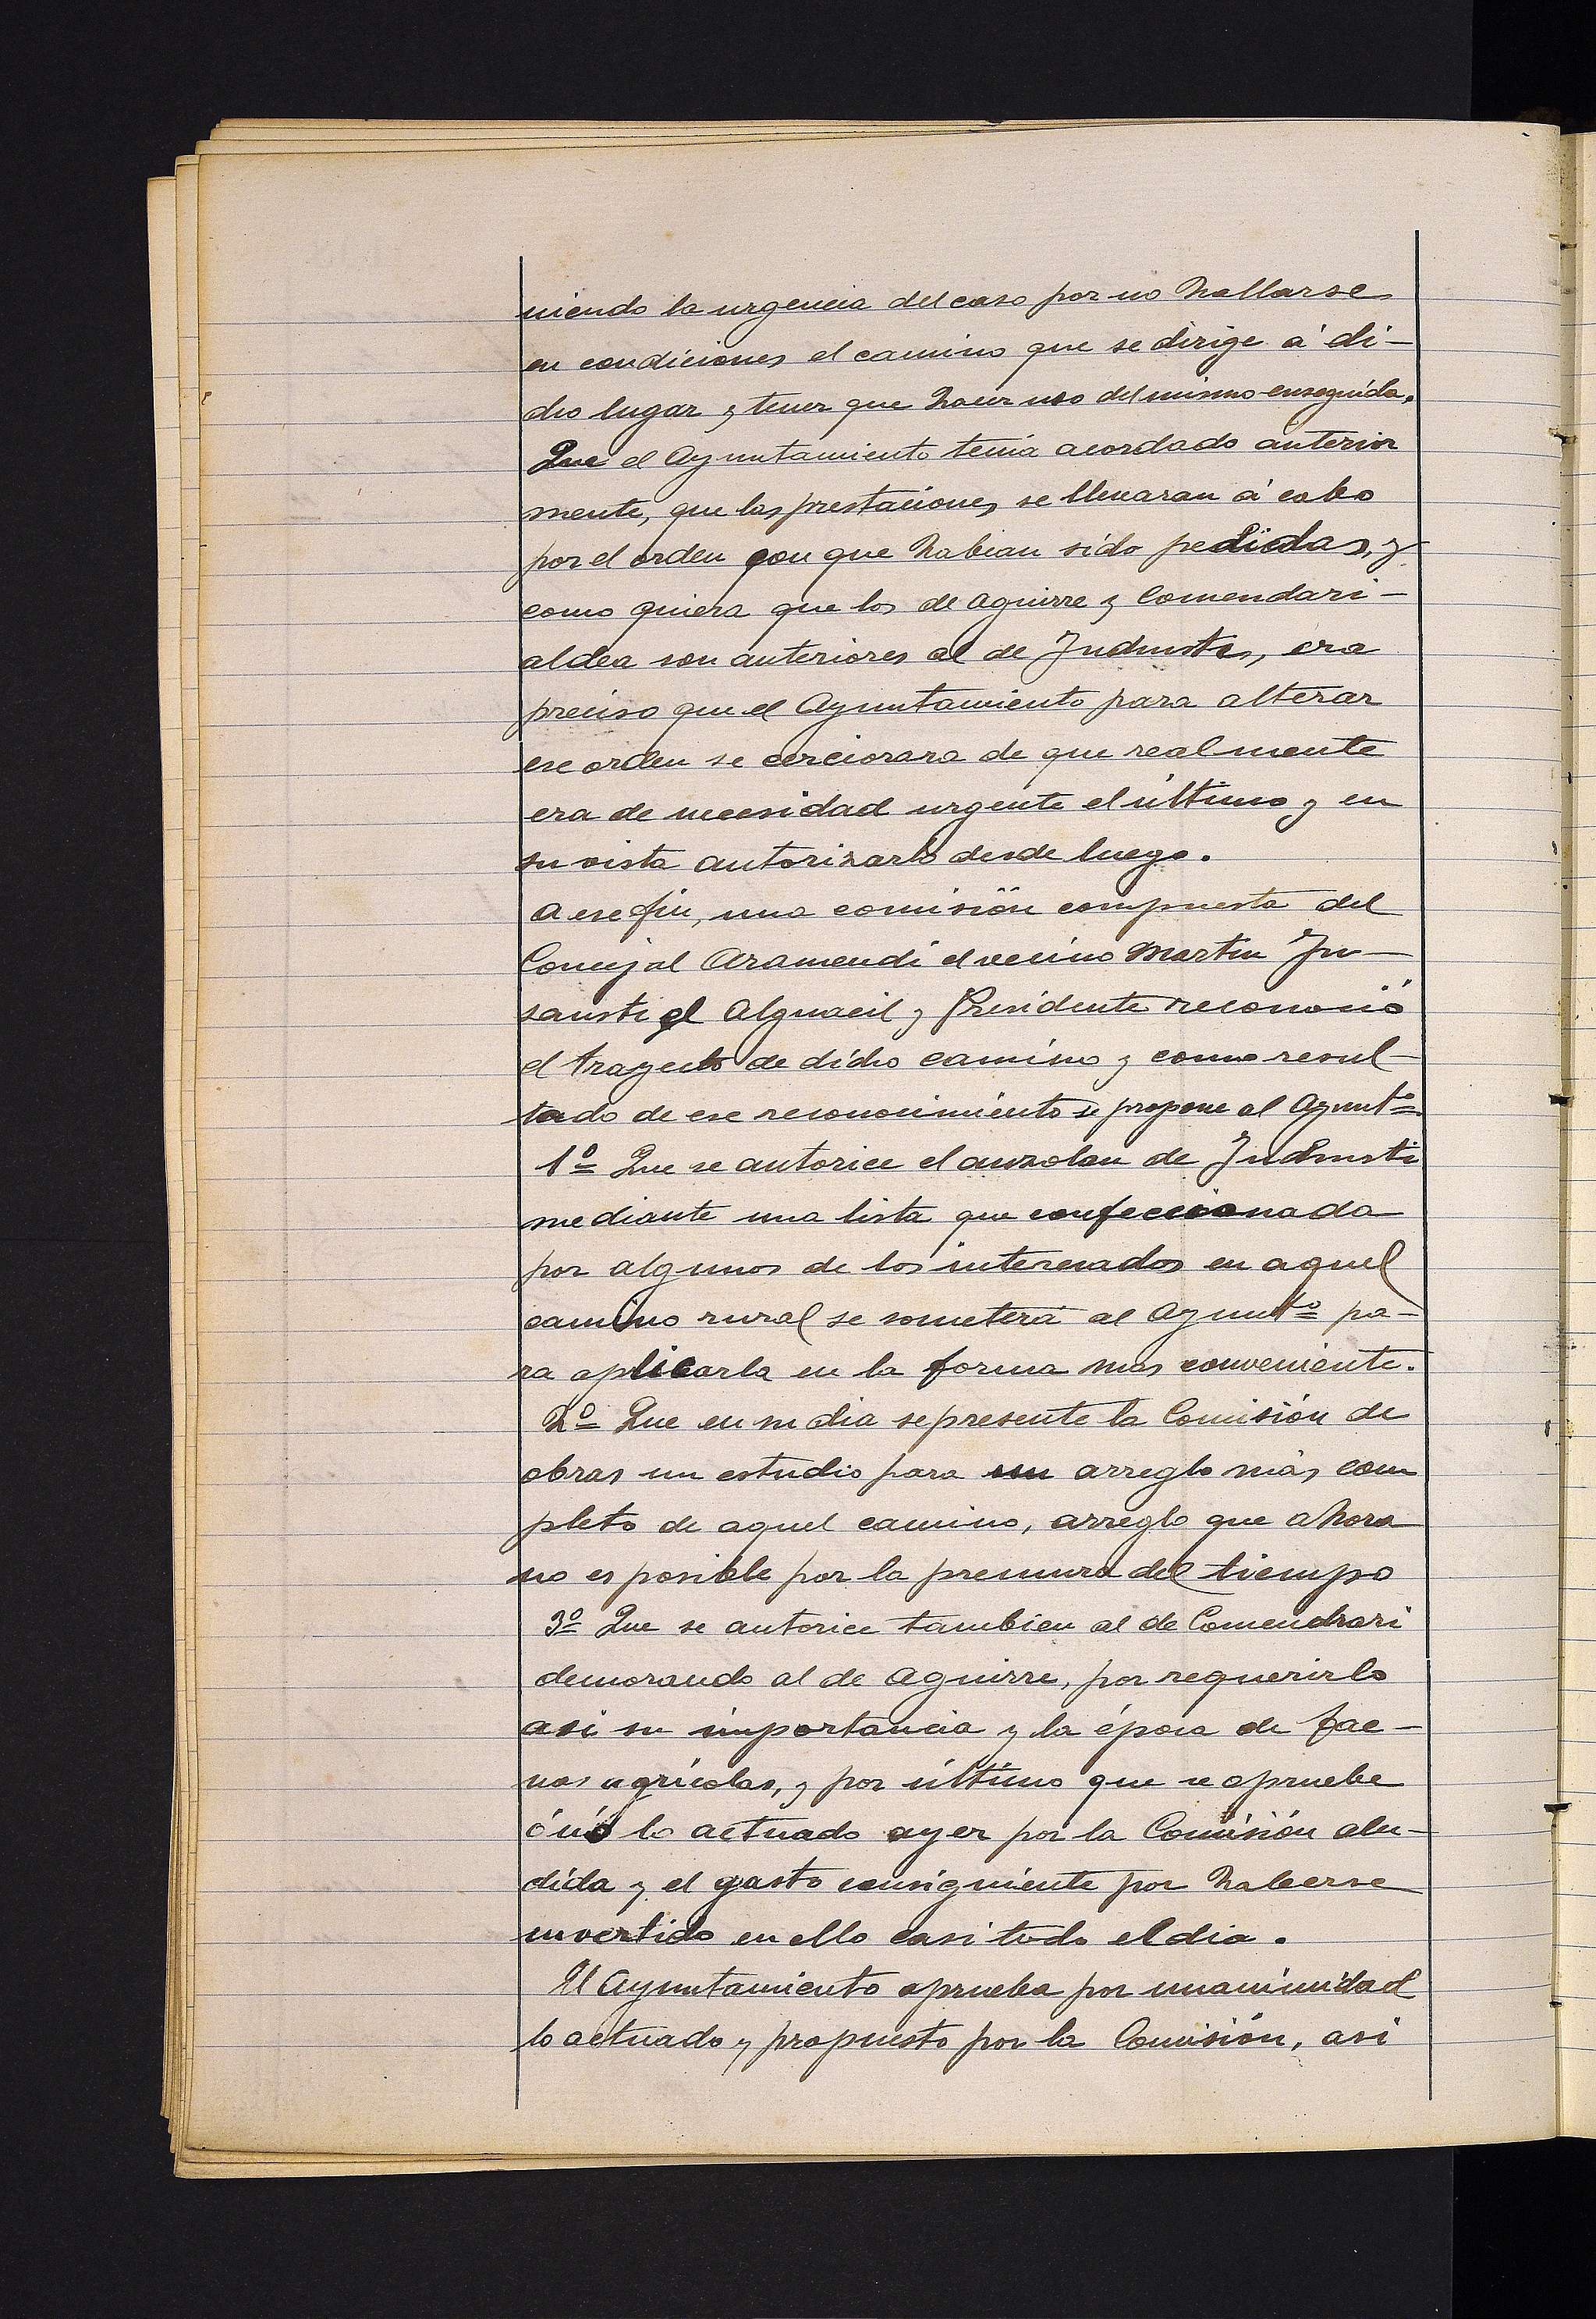 niendo la urgencia del caso por no hallarse
en condiciones el camino que se dirige á di-
cho lugar y tener que hacer uso del mismo enseguida.
Que el Ayuntamiento tenia acordado anterior
mente, que las prestaciones se llevaran á cabo
por el orden con que habian sido pedidas, y
como quiera que los de Aguirre y Comendari-
aldea son anteriores al de Indusste, era
preciso que el Ayuntamiento para alterar
ese orden se cerciorara de que realmente
era de necesidad urgente el último y en
su vista autorizarlo desde luego.
A ese fin, una comisión compuesta del
Concejal Aramendi el vecino Martin In-
sausti el Alguacil y Presidente reconoció
el trayecto de dicho camino y como resul-
tado de ese reconocimiento se propone al Ayuntº
1º Que se autorice el auzolan de Industi
mediante una lista que confeccionada
por algunos de los interesados en aquel
camino rural se someterá al Ayuntº pa-
ra aplicarla en la forma mas conveniente.
2º Que en su dia se presente la Comisión de
obras un estudio para un arreglo más com
pleto de aquel camino, arreglo que ahora
no es posible por la premura del tiempo
3º Que se autorice tambien al de Comendrari
demorando al de Aguirre, por requerirlo
asi su importancia y la época de fae-
nas agrícolas, y por último que se apruebe
ó nó lo actuado ayer por la Comisión alu-
dida y el gasto consiguiente por haberse
invertido en ello casi todo el dia.
El Ayuntamiento aprueba por unanimidad
lo actuado y propuesto por la Comisión, asi